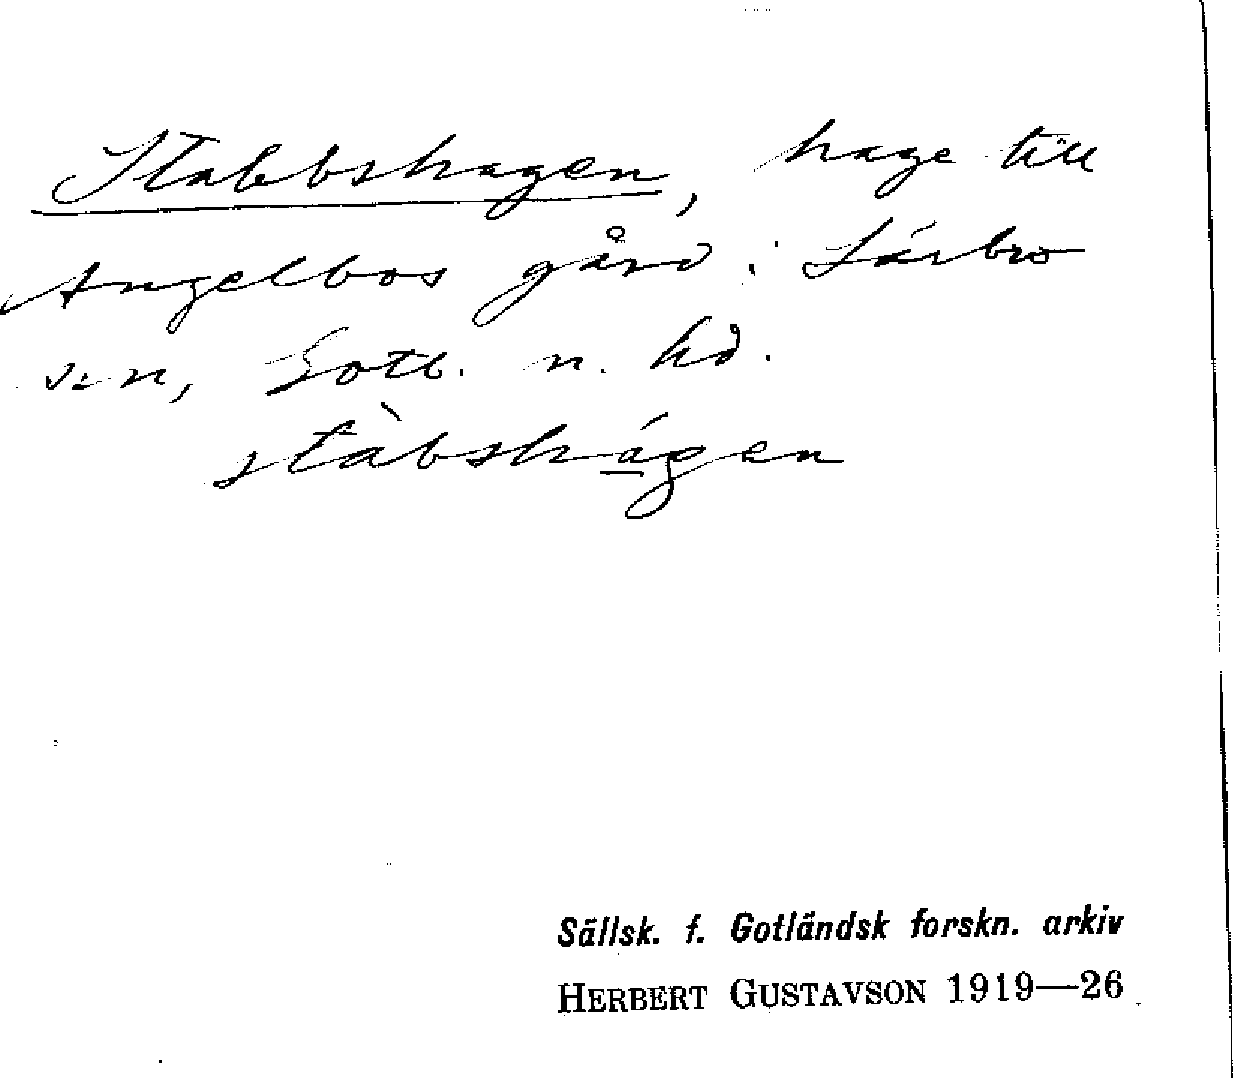 Stabbshagen, hage till
Angelbos gård i Lärbro
s:n, Gotl. n. hd.
stàbshágen
Sällsk. f. Gotländsk forskn. arkiv
HERBERT GUSTAVSON 1919—26